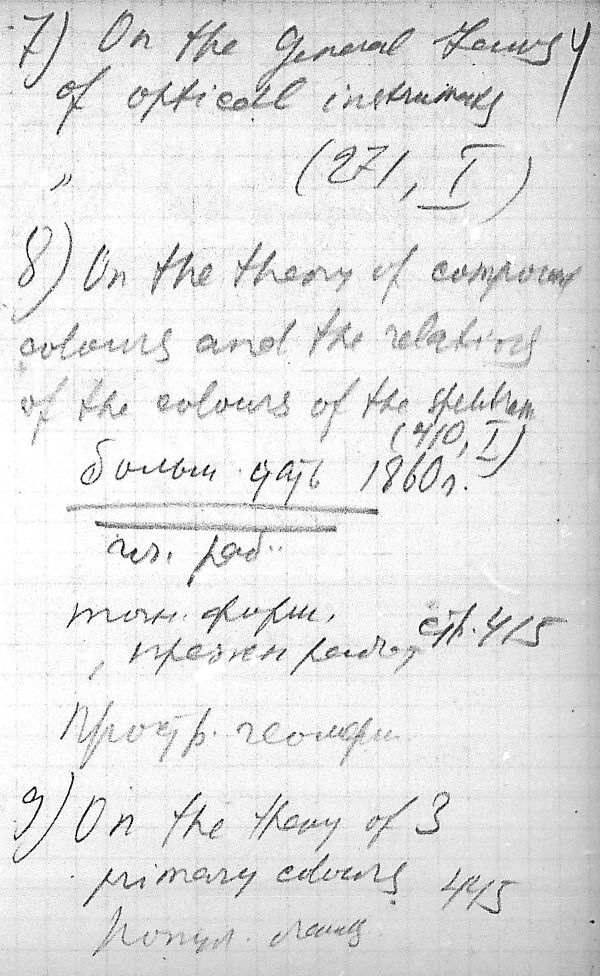 7) On the General Laws
of optical instruments
" (271, I)
8) On the theory of compound
colours and the relations
of the colours of the spectrum
(410, I)
больш. часть 1860г.
гл. раб.
точн. форм. стр. 415
простр. геометр.
9) On the theory of 3
primary colours 445
попул.